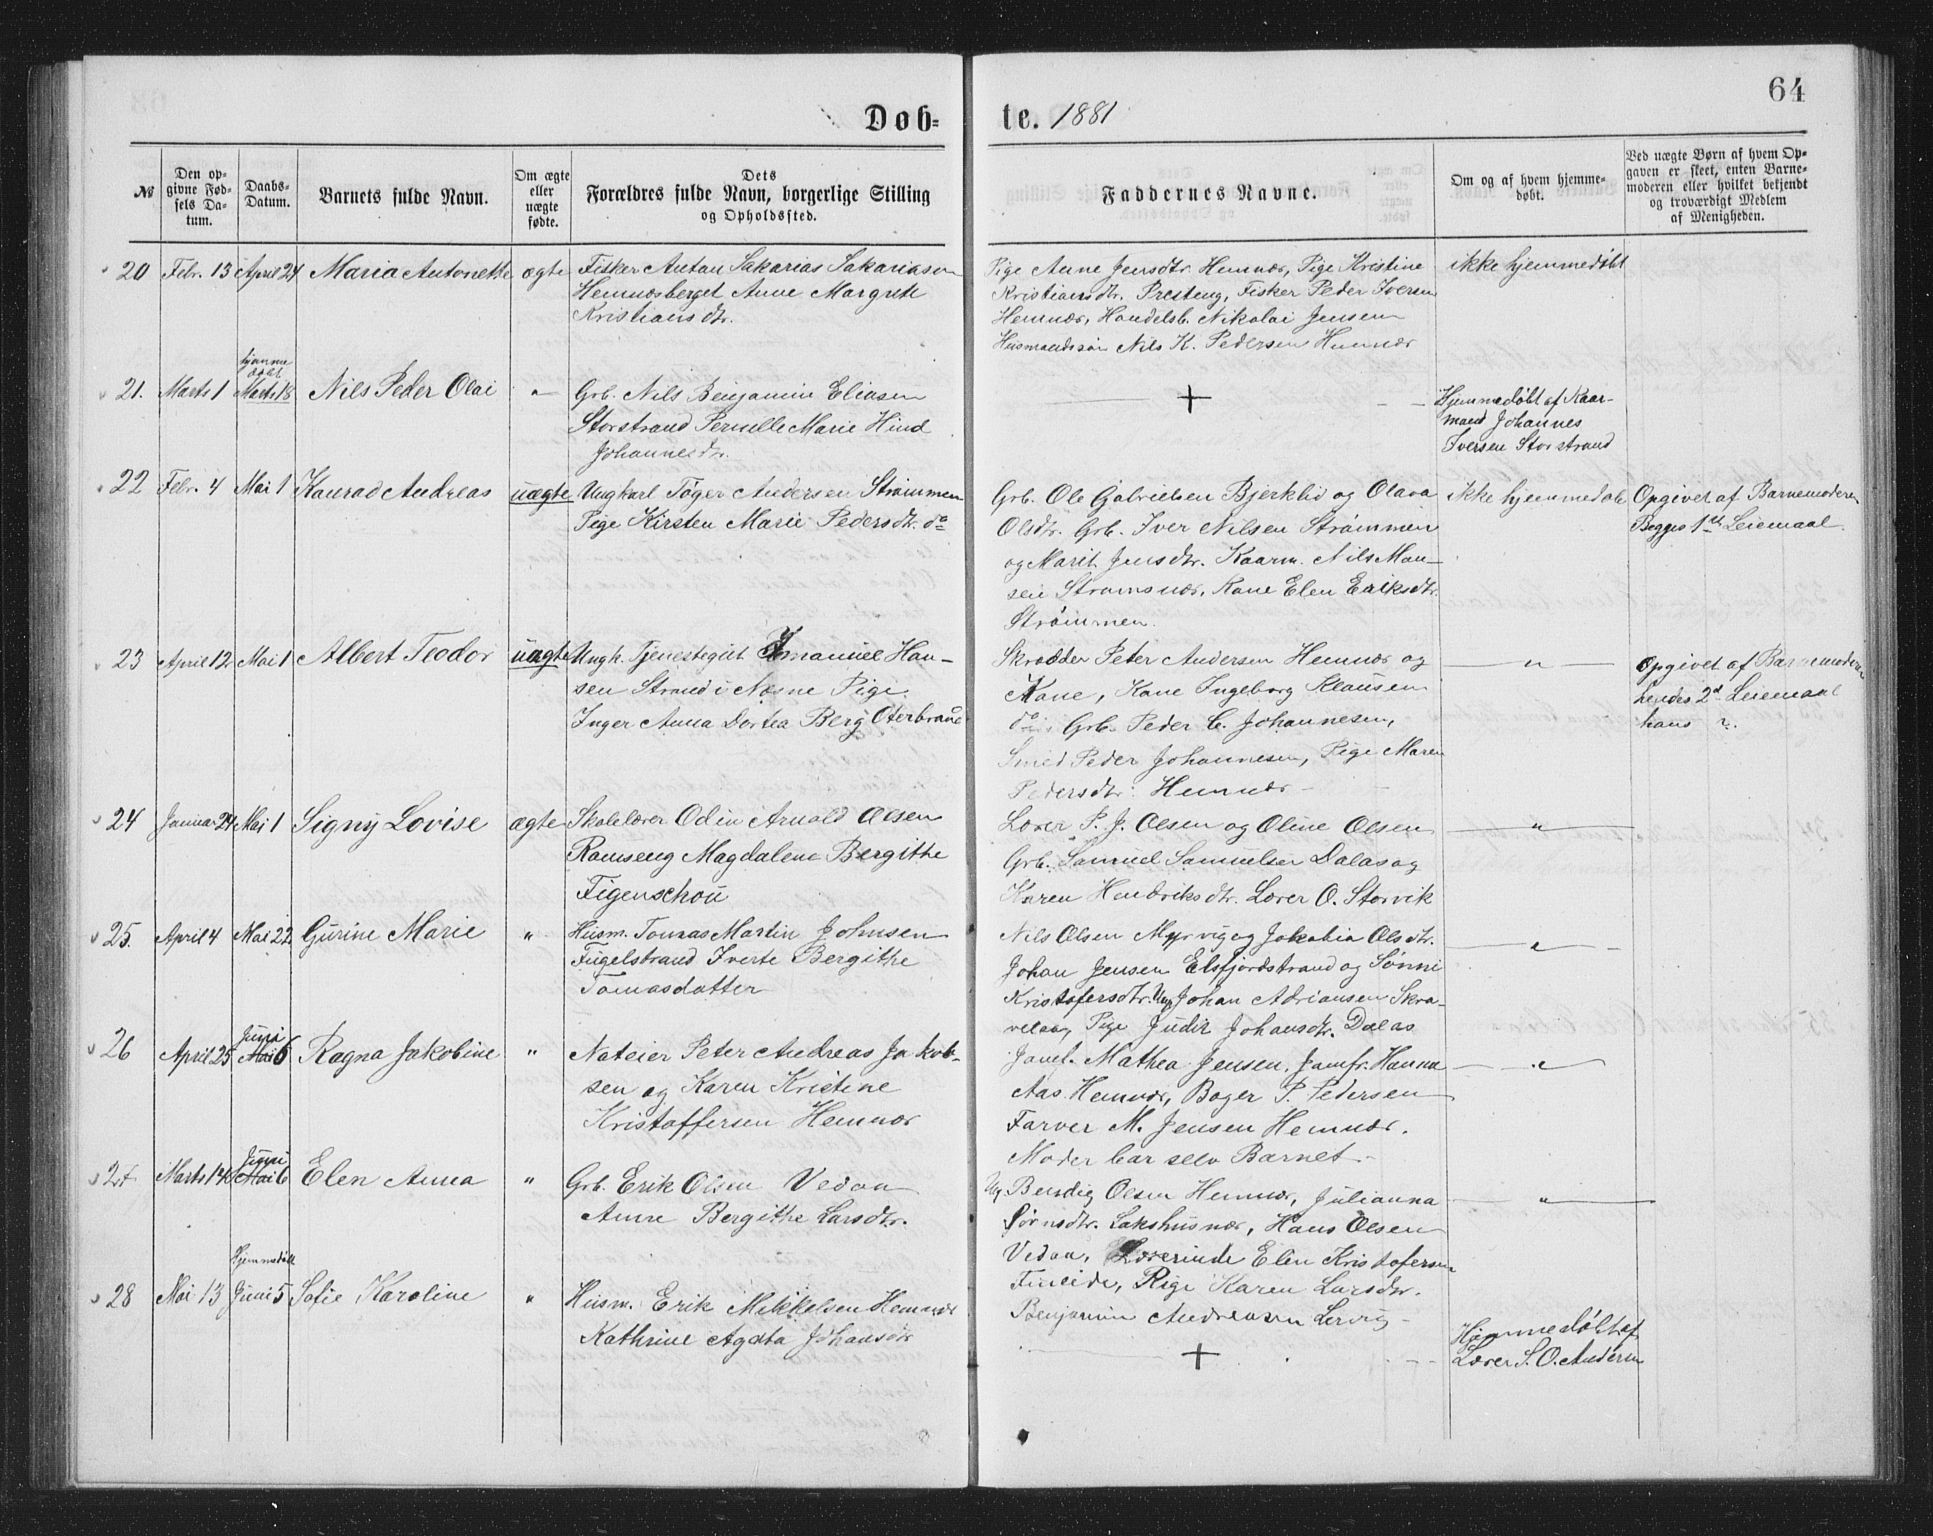 64
Døb-
te. 1881
№
Den op-
givne Fød-
sels Da-
tum.
Daabs-
Datum.
Barnets fulde Navn.
Om ægte
eller
uægte
fødte.
Dets
Forældres fulde Navn, borgerlige Stilling
og Opholdssted.
Faddernes Navne.
Om og af hvem hjemme-
døbt.
Ved uægte Børn af hvem Op-
gaven er skeet, enten Barne-
moderen eller hvilket bekjendt
og troværdigt Medlem
af Menigheden.
20 Febr. 13 April 24 Maria Antonette ægte
Fisker Antau Sakarias Sakariasen
Hemnæsberget Anne Margrete
Kristiansdtr.
Pige Anne Jensdtr. Hemnæs, Pige Kristine
Kristiansdtr. Presteng, Fisker Peder Iversen
Hemnæs, Handelsb. Nikolai Jensen
Husmandssøn Nils K. Pedersen Hemnæs
ikke hjemmedøbt
21. Marts 1 hjemme
døbt
Marts 18 Nils Peder Olai "
Grb. Nils Benjamin Eliasen
Storstrand Pernelle Marie Hind
Johannesdtr.
+
Hjemmedøbt af Kaar-
mand Johannes
Iversen Storstrand
22 Febr. 4 Mai 1 Konrad Andreas uægte
Ungkarl Tøger Andersen Strømmen
Pige Kirsten Marie Pedersdtr. do
Grb. Ole Gabrielsen Bjerklid og Olava
Olsdtr. Grb. Iver Nilsen Strømmen
og Marit Jensdtr. Kaarm. Nils Mon-
sen Strømsnæs, Kone Elen Eriksdtr.
Strømmen.
ikke hjemmedøbt
Opgivet af Barnemoderen
Begges 1ste Leiemaal.
23 April 12 Mai 1 Albert Teodor uægte
Ungk. Tjenestegut Imanuel Han-
sen Strand i Næsne Pige
Inger Anna Dortea Berg Oterbrane
Skrædder Peter Andersen Hemnæs og
Kone, Kone Ingeborg Klausen
do Grb. Peder C. Johannesen,
Smed Peder Johannesen, Pige Maren
Pedersdtr. Hemnæs
"
Opgivet af Barnemoderen
hendes 2d Leiemaal
hans ?.
24 Januar 24 Mai 1 Signy Lovise ægte
Skolelærer Odin Arnold Olsen
Ramseng Magdalena Bergithe
Figenschou
Lærer P. J. Olsen og Oline Olsen
Grb. Samuel Samuelsen Dalas og
Karen Hendriksdtr. Lærer O. Storvik
"
25. April 4 Mai 22 Gurine Marie "
Husm. Tomas Martin Johnsen
Fugelstrand Iverte Bergithe
Tomasdatter
Nils Olsen Myrvig og Jakobia Olsdtr.
Johan Jensen Elsfjordstrand og Sønni
Kristofersdtr. Ung Johan Adriansen Skra-
velaag Pige Judit Johansdtr. Dalas
"
26 April 25 Juni
Mai 6 Ragna Jakobine "
Nateier Peter Andreas Jakob-
sen og Karen Kristine
Kristoffersen Hemnæs
Jomf. Mathea Jensen, Jomfr. Hanna
Aas Hemnæs, Bager P. Pedersen
Farver M. Jensen Hemnæs.
Moder bar selv Barnet.
"
27 Marts 14 Juni
Mai 6 Elen Anna "
Grb. Erik Olsen Vedaa
Anne Bergithe Larsdtr.
Ug. Bendig Olsen Hemnæs, Julianna
Sørnsdtr. Lakshusnæs, Hans Olsen
Vedaa, Lærerinde Elen Kristofersen
Fineide, Pige Karen Larsdtr.
Benjamin Andreasen Lervig
"
28 Mai 13 Hjemmedøbt
Juni 5 Sofie Karoline "
Husm. Erik Mikkelsen Hemnæs
Kathrine Agata Johansdtr
+
Hjemmedøbt af
Lærer S. O. Andersen